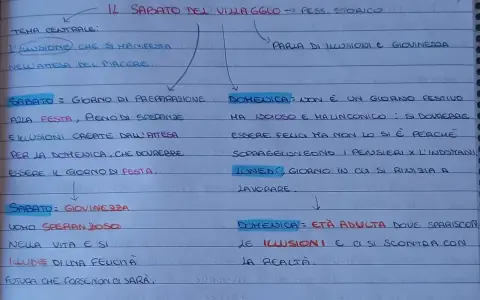 IL SABATO DEL VILLAGGIO → PESS. STORICO
TEMA CENTRALE:
L'ILLUSIONE CHE SI MANIFESTA
NELL'ATTESA DEL PIACERE.
PARLA DI ILLUSIONI E GIOVINEZZA
SABATO = GIORNO DI PREPARAZIONE
ALLA FESTA, PIENO DI SPERANZE
E ILLUSIONI CREATE DALL'ATTESA
PER LA DOMENICA, CHE DOVREBBE
ESSERE IL GIORNO DI FESTA.
DOMENICA = NON È UN GIORNO FESTIVO
MA NOIOSO E MALINCONICO: SI DOVREBBE
ESSERE FELICI MA NON LO SI È PERCHÉ
SOPRAGGIONGONO I PENSIERI X L'INDOMANI
LUNEDÌ, GIORNO IN CUI SI RINIZIA A
LAVORARE.
SABATO = GIOVINEZZA
UOMO SPERANZOSO
NELLA VITA E SI
ILLUDE DI UNA FELICITÀ
FUTURA CHE FORSE NON CI SARÀ.
DOMENICA = ETÀ ADULTA DOVE SPARISCON
LE ILLUSIONI E CI SI SCONTRA CON
LA REALTÀ.